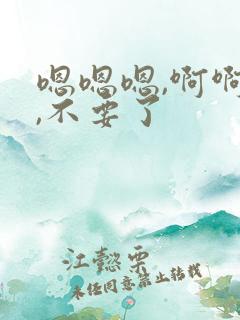 嗯嗯嗯,啊啊
,不要了
江懿栗
未经同意禁止转载